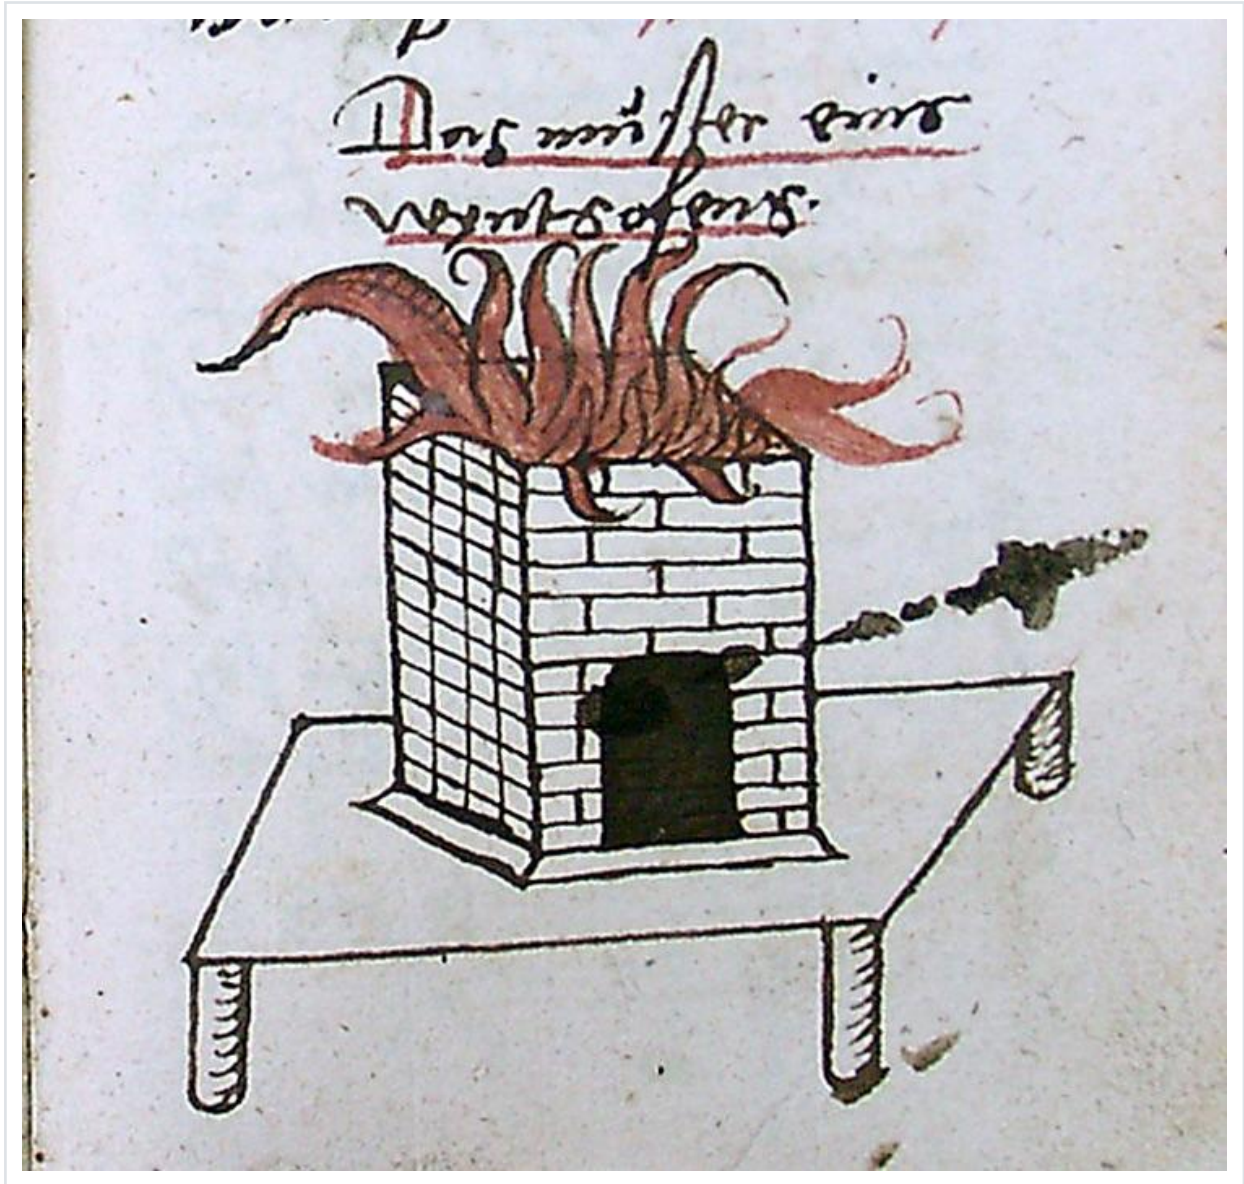 Das muster eins
wyntsofens.